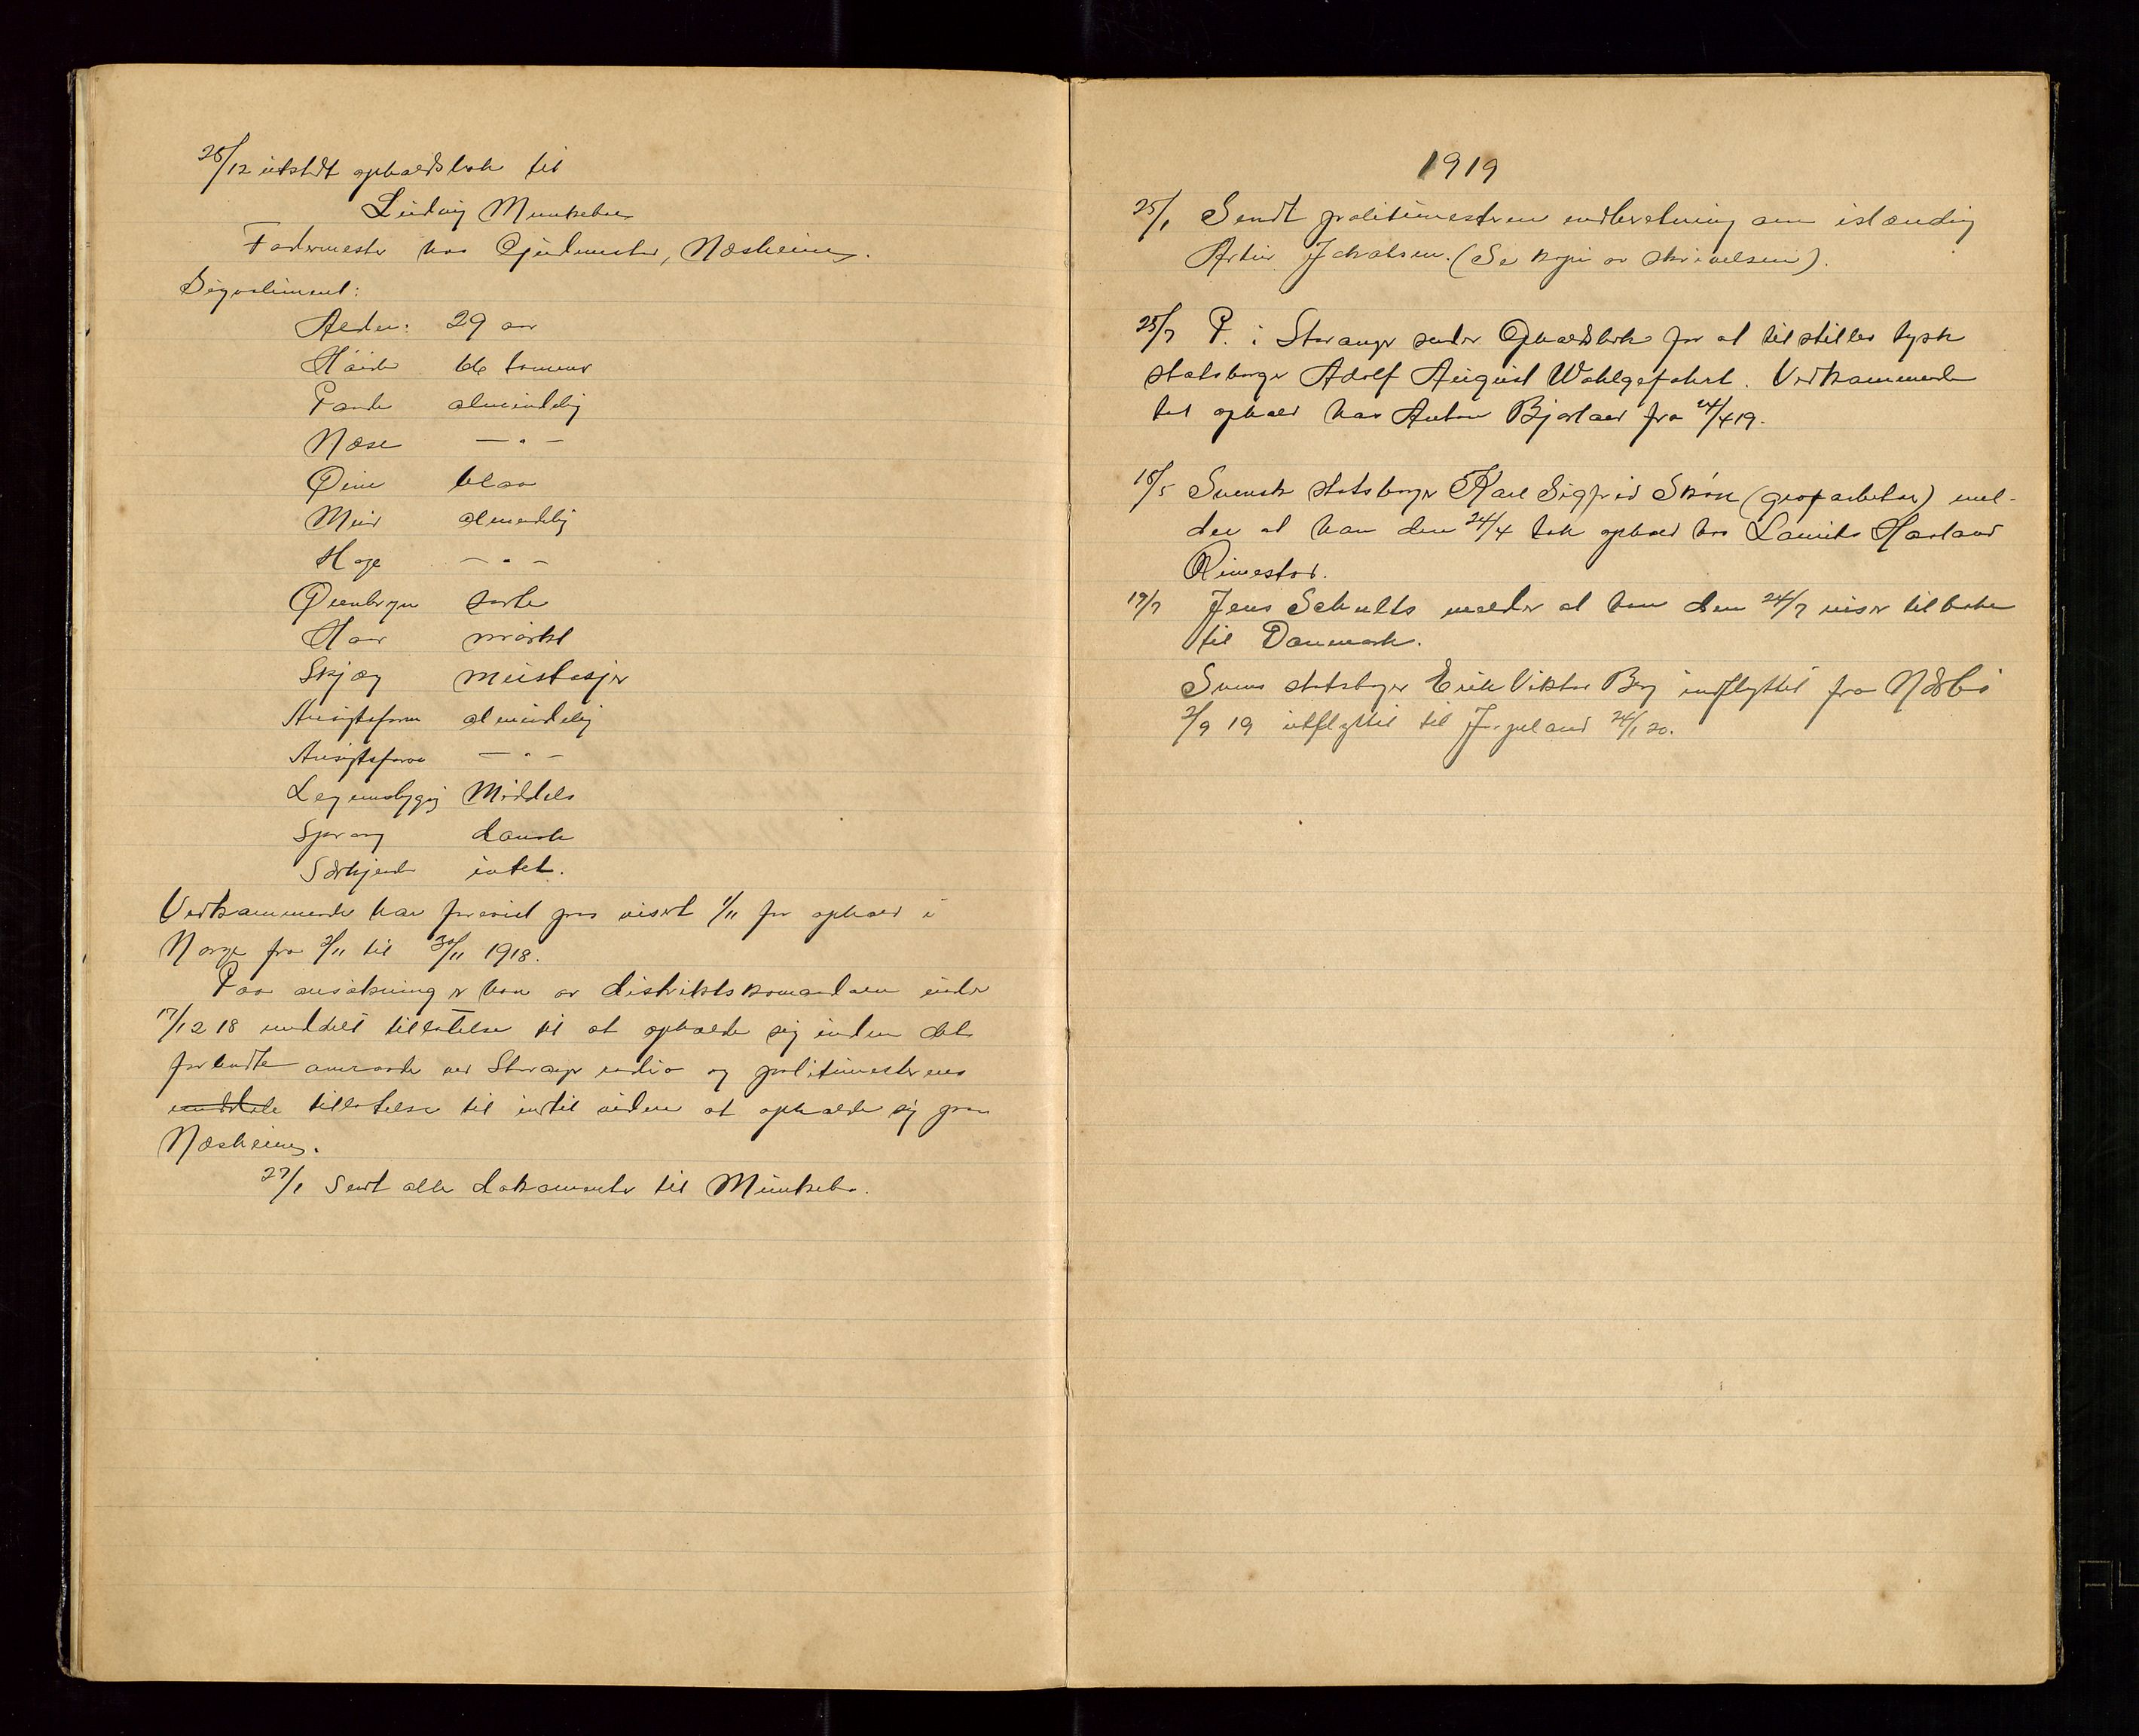 28/12 utstedt opholdsbok til
Ludvig Munkebo
Fodermester hos Gjedemsdal, Næsheim.
Signaliment:
Alder: 29 aar
Høide 66 tommer
Pande almindelig
Næse — " —
Øine blaa
Mund almindelig
Hage — " —
Øienbryn sorte
Haar mørkt
Skjæg mustasjer
Ansigtsform almindelig
Ansigtsfarve — " —
Legemsbygg Middels
Sprog dansk
Særkjende intet.
Vedkommende har forevist pas visert 1/11 for ophold i
Norge fra 2/11 til 30/11 1918.
Paa ansøkning er han av distriktskomandoen under
17/12 18 meddelt tillatelse til at opholde sig inden det
forbudte omraade ved Stavanger radio og politimesterens
meddele tillatelse til indtil videre at opholde sig paa
Næsheim.
27/1 Sent alle dokumenter til Munkebo.
1919
25/1 Sendt politimesteren indberetning om islænding
Artur Jakobsen. (Se kopi av skrivelsen).
25/7 P. i Stavanger sender Opholdsbok for at tilstilles tysk
statsborger Adolf August Wohlgefahrt. Vedkommende
tat ophold hos Anton Bjorland fra 24/4 19.
18/5 Svensk statsborger Karl Sigfrid Skön (grøfarbeider) mel-
der at han den 24/4 tok ophold hos Lauritz Haaland
Rimestad.
19/7 Jens Schults melder at han den 24/7 reiser tilbake
til Danmark.
Svens statsborger Erik Viktor Berg indflyttet fra Nærbø
2/9 19 utflyttet til Jørpeland 24/1 20.